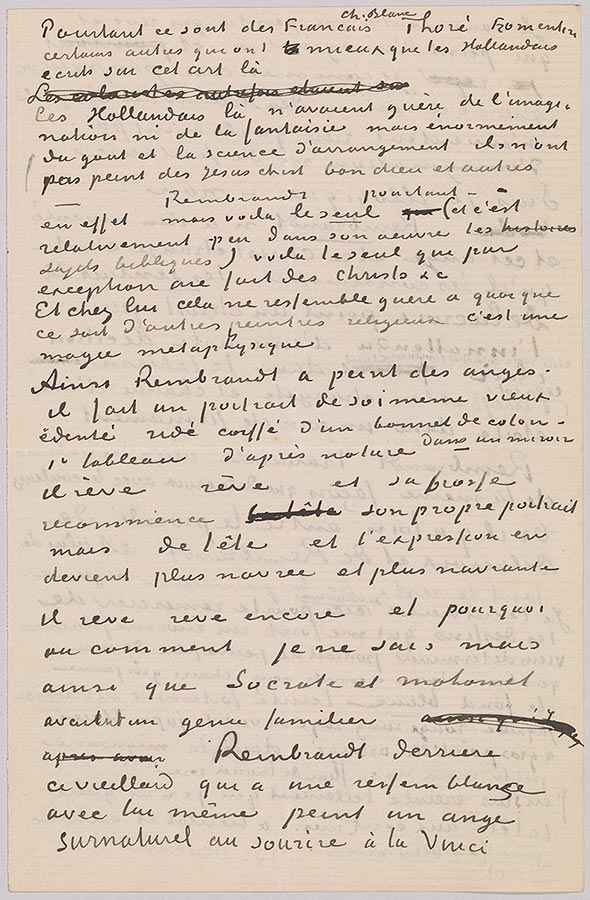 Pourtant ce sont des Francais Ch. Blanc Thoré Fromentin
certains autres qui ont mieux que les Hollandais
ecrits sur cet art là
Les
Ces Hollandais là n'avaient guère de l'imagi-
nation ni de la fantaisie mais énormement
du gout et la science d'arrangement ils n'ont
pas peint des Jesus christ bon dieu et autres
Rembrandt pourtant –
en effet mais voila le seul (et c'est
relativement peu dans son oeuvre les histoires
sujets bibliques) voila le seul que par
exception aie fait des Christs &c
Et chez lui cela ne ressemble guère a quoi que
ce soit d'autres peintres religieux c'est une
magie metaphysique
Ainsi Rembrandt a peint des anges –
il fait un portrait de soi meme vieux
édenté ridé coiffé d'un bonnet de coton –
1er tableau d'après nature dans un miroir
il rêve rêve et sa brosse
recommence sa tête son propre portrait
mais de tête et l'expression en
devient plus navrée et plus navrante
il reve reve encore et pourquoi
ou comment je ne sais mais
ainsi que Socrate et Mahomet
avaient un genie familier
après avoir Rembrandt derriere
ce vieillard qui a une ressemblance
avec lui même peint un ange
surnaturel au sourire à la Vinci